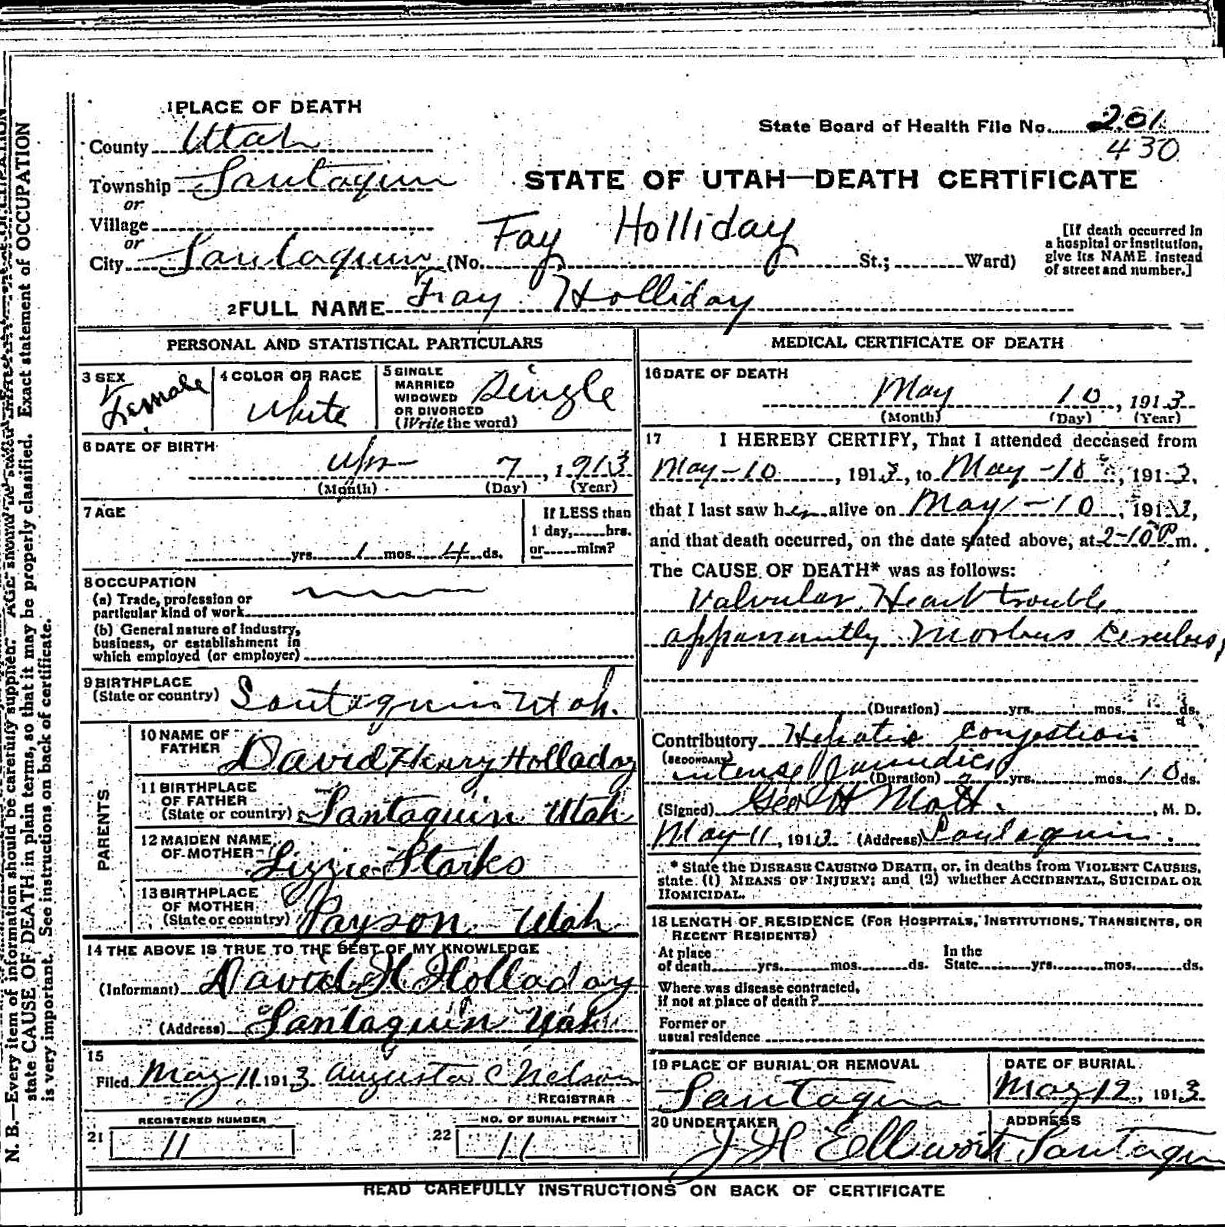 1 PLACE OF DEATH
County Utah
State Board of Health File No. 201
430
Township Santaquin
or
STATE OF UTAH—DEATH CERTIFICATE
Village
or
City Santaquin (No. St.; Ward)
Fay Holliday
[If death occurred in
a hospital or institution,
give its NAME instead
of street and number.]
2 FULL NAME Fray Holliday
PERSONAL AND STATISTICAL PARTICULARS
3 SEX Female
4 COLOR OR RACE White
5 SINGLE
MARRIED
WIDOWED
OR DIVORCED
(Write the word) Single
6 DATE OF BIRTH
Apr 7, 1913
(Month) (Day) (Year)
7 AGE
yrs. 1 mos. 4 ds.
If LESS than
1 day, hrs.
or min?
8 OCCUPATION
(a) Trade, profession or
particular kind of work
(b) General nature of industry,
business, or establishment in
which employed (or employer)
9 BIRTHPLACE
(State or country) Santaquin Utah.
PARENTS
10 NAME OF
FATHER David Henry Holladay
11 BIRTHPLACE
OF FATHER
(State or country) Santaquin Utah
12 MAIDEN NAME
OF MOTHER Lizzie Starks
13 BIRTHPLACE
OF MOTHER
(State or country) Payson Utah
14 THE ABOVE IS TRUE TO THE BEST OF MY KNOWLEDGE
(Informant) David H Holladay
(Address) Santaquin Utah
15
Filed May 11 1913 Augusta C Nelson
REGISTRAR
REGISTERED NUMBER
21 11
NO. OF BURIAL PERMIT
22 11
MEDICAL CERTIFICATE OF DEATH
16 DATE OF DEATH
May 10, 1913
(Month) (Day) (Year)
17 I HEREBY CERTIFY, That I attended deceased from
May-10, 1913, to May-10, 1913,
that I last saw her alive on May-10, 1913,
and that death occurred, on the date stated above, at 2-10 P m.
The CAUSE OF DEATH* was as follows:
Valvular Heart trouble
apparantly Morbus
(Duration) yrs. mos. ds.
Contributory Hepatic Congestion
(SECONDARY) intense Jaundice
(Duration) yrs. mos. 10 ds.
(Signed) Geo H Mott. M. D.
May 11, 1913 (Address) Santaquin.
* State the DISEASE CAUSING DEATH, or, in deaths from VIOLENT CAUSES,
state (1) MEANS OF INJURY; and (2) whether ACCIDENTAL, SUICIDAL OR
HOMICIDAL.
18 LENGTH OF RESIDENCE (FOR HOSPITALS, INSTITUTIONS, TRANSIENTS, OR
RECENT RESIDENTS)
At place
of death yrs. mos. ds.
In the
State yrs. mos. ds.
Where was disease contracted,
if not at place of death?
Former or
usual residence
19 PLACE OF BURIAL OR REMOVAL
Santaquin
DATE OF BURIAL
May 12, 1913
20 UNDERTAKER
J H Ellsworth
ADDRESS
Santaquin
READ CAREFULLY INSTRUCTIONS ON BACK OF CERTIFICATE
N. B.—Every item of information should be carefully supplied. AGE should be stated
state CAUSE OF DEATH in plain terms, so that it may be properly classified. Exact statement of OCCUPATION
is very important. See instructions on back of certificate.